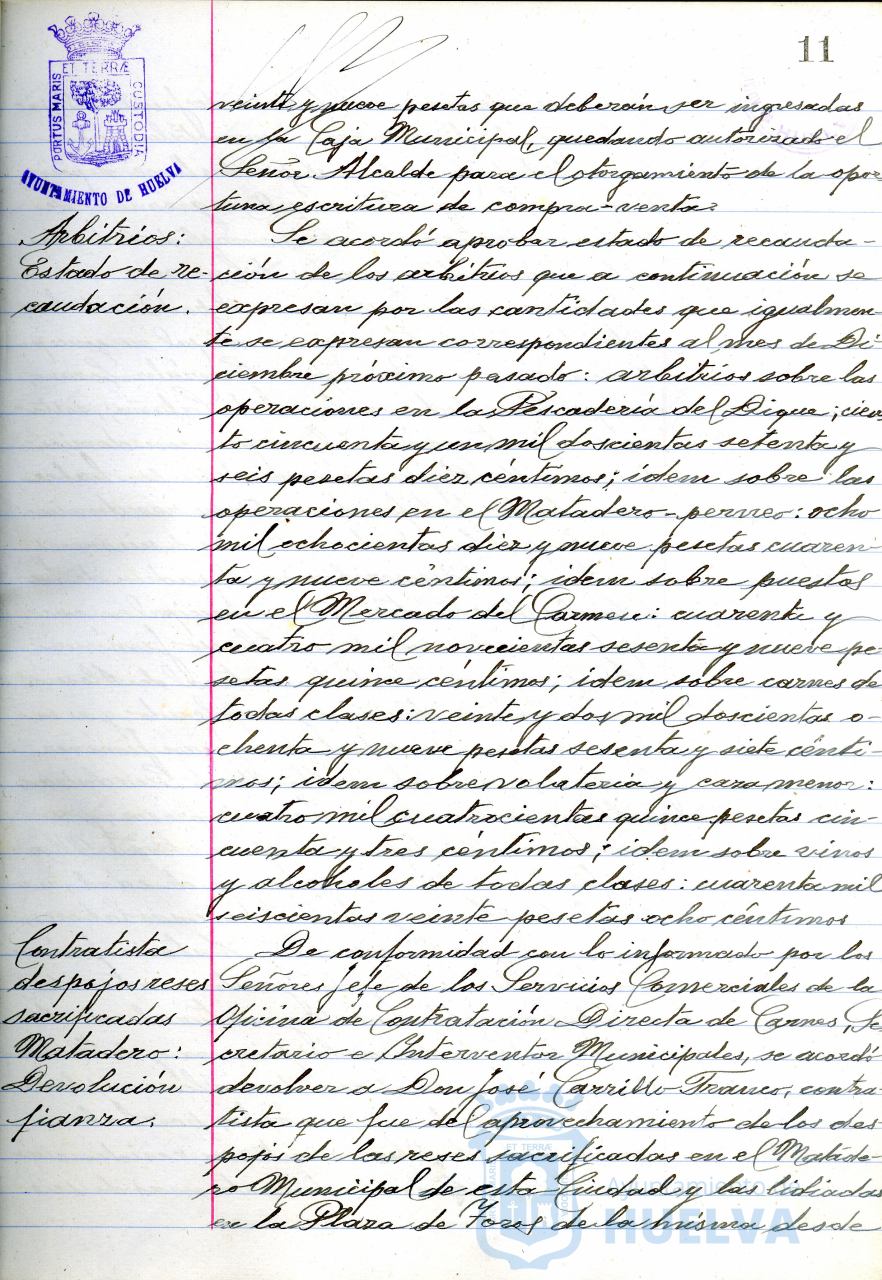 11
PORTUS MARIS
ET TERRÆ
CUSTODIA
AYUNTAMIENTO DE HUELVA
veinti y nueve pesetas que deberán ser ingresadas
en la Caja Municipal, quedando autorizado el
Señor Alcalde para el otorgamiento de la opor
tuna escritura de compra-venta.
Arbitrios:
Estado de re-
caudación.
Se acordó aprobar estado de recauda-
ción de los arbitrios que a continuación se
expresan por las cantidades que igualmen-
te se expresan correspondientes al mes de Di-
ciembre próximo pasado: arbitrios sobre las
operaciones en la Pescadería del Dique; cien-
to cincuenta y un mil doscientas setenta y
seis pesetas diez céntimos; idem sobre las
operaciones en el Matadero-perneo: ocho
mil ochocientas diez y nueve pesetas cuaren-
ta y nueve céntimos; idem sobre puestos
en el Mercado del Carmen: cuarenta y
cuatro mil novecientas sesenta y nueve pe-
setas quince céntimos; idem sobre carnes de
todas clases: veinte y dos mil doscientas o-
chenta y nueve pesetas sesenta y siete cénti-
mos; idem sobre volateria y caza menor:
cuatro mil cuatrocientas quince pesetas cin-
cuenta y tres céntimos; idem sobre vinos
y alcoholes de todas clases: cuarenta mil
seiscientas veinte pesetas ocho céntimos
Contratista
despojos reses
sacrificadas
Matadero:
Devolución
fianza.
De conformidad con lo informado por los
Señores Jefe de los Servicios Comerciales de la
Oficina de Contratación Directa de Carnes, Se
cretario e Interventor Municipales, se acordó
devolver a Don José Carrillo Franco, contra-
tista que fue del aprovechamiento de los des-
pojos de las reses sacrificadas en el Matade-
ro Municipal de esta Ciudad y las lidiadas
en la Plaza de Toros de la misma desde
Ayuntamiento de
HUELVA